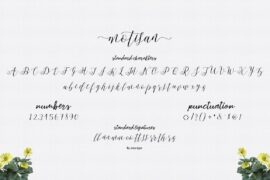 motisan
standard characters
A B C D E F G H I J K L M N O P Q R S T U V W X Y Z
a b c d e f g h i j k l m n o p q r s t u v w x y z
numbers
punctuation
1 2 3 4 5 6 7 8 9 0
standard ligatures